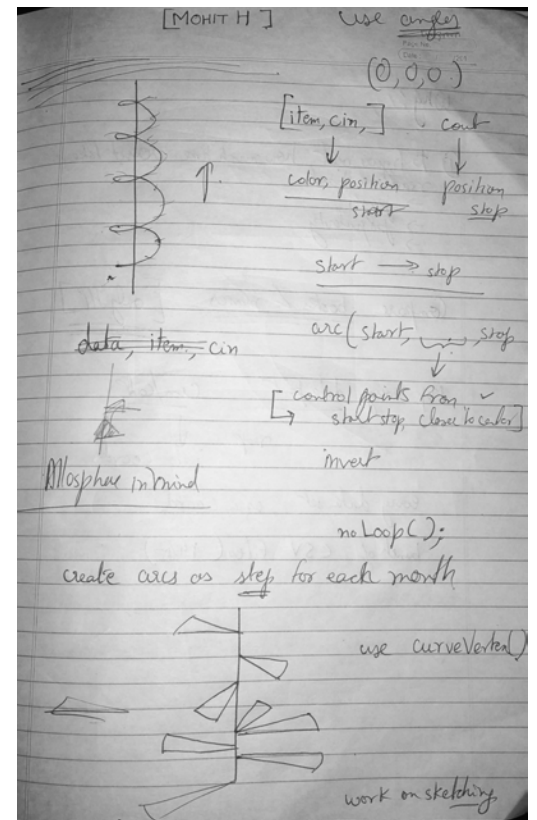 [MOHIT H]
use angles
(0,0,0)
[item, cin, ]
cout
color, position
start
position
stop
start → stop
data, item, cin
arc(start, , stop
[control points from
start stop, closer to center]
invert
in mind
noLoop();
create arcs as step for each month
use curveVertex()
work on sketching